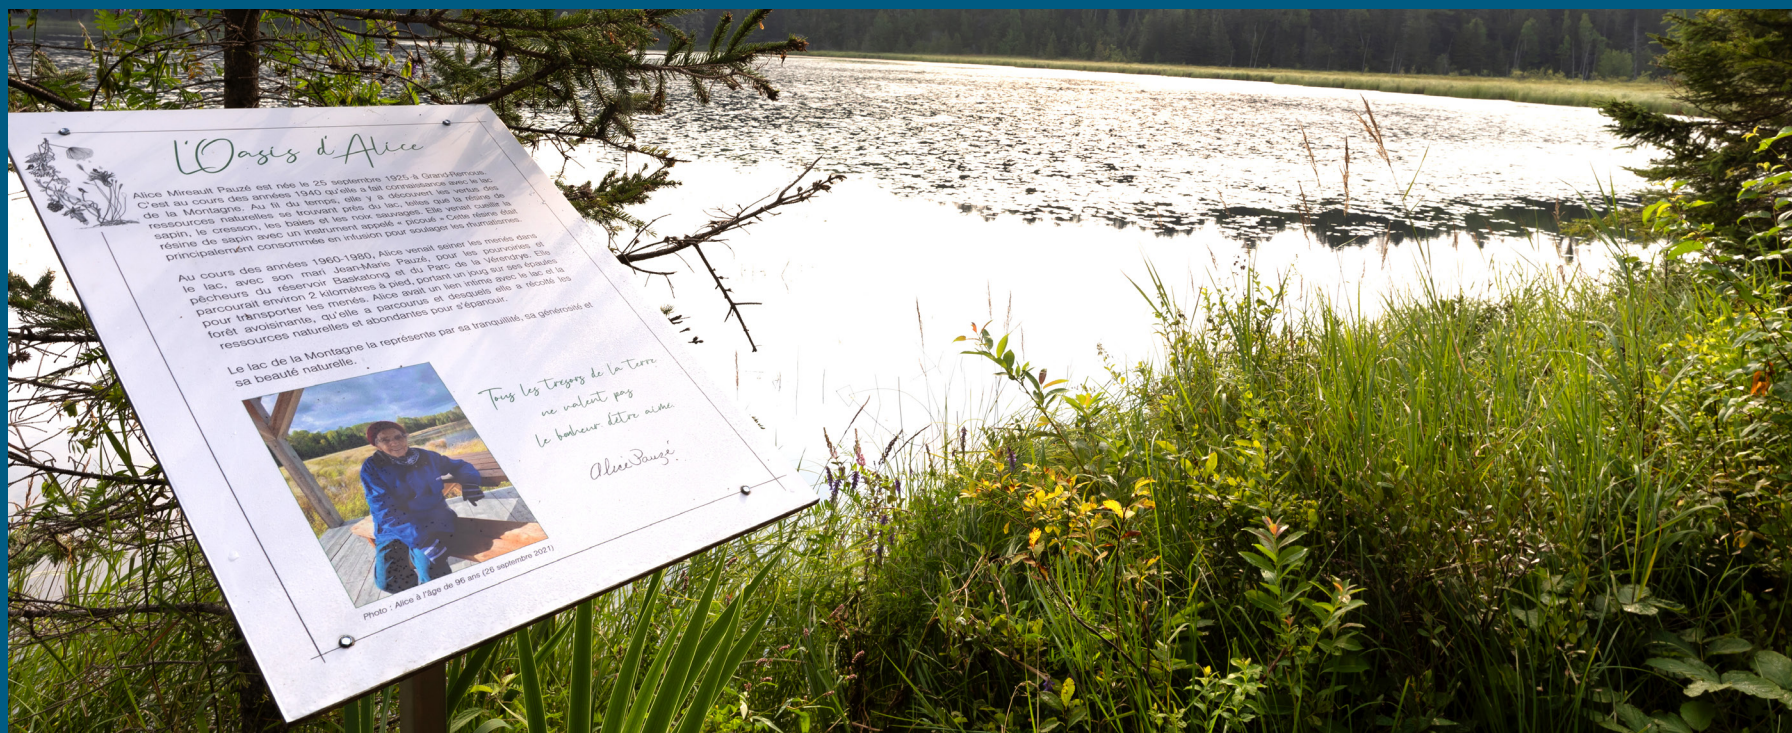 L'Oasis d'Alice
Alice Mireault Pauzé est née le 25 septembre 1925 à Grand-Remous.
C'est au cours des années 1940 qu'elle a fait connaissance avec le lac
de la Montagne. Au fil du temps, elle y a découvert les vertus des
ressources naturelles se trouvant près du lac, telles que la résine de
sapin, le cresson, les baies et les noix sauvages. Elle venait cueillir la
résine de sapin avec un instrument appelé « picoué ». Cette résine était
principalement consommée en infusion pour soulager les rhumatismes.
Au cours des années 1960-1980, Alice venait seiner les menés dans
le lac, avec son mari Jean-Marie Pauzé, pour les pourvoiries et
pêcheurs du réservoir Baskatong et du Parc de la Vérendrye. Elle
parcourait environ 2 kilomètres à pied, portant un joug sur ses épaules
pour transporter les menés. Alice avait un lien intime avec le lac et la
forêt avoisinante, qu'elle a parcourus et desquels elle a récolté les
ressources naturelles et abondantes pour s'épanouir.
Le lac de la Montagne la représente par sa tranquillité, sa générosité et
sa beauté naturelle.
Tous les trésors de la terre
ne valent pas
le bonheur d'être aimé.
Alice Pauzé
Photo : Alice à l'âge de 96 ans (26 septembre 2021)